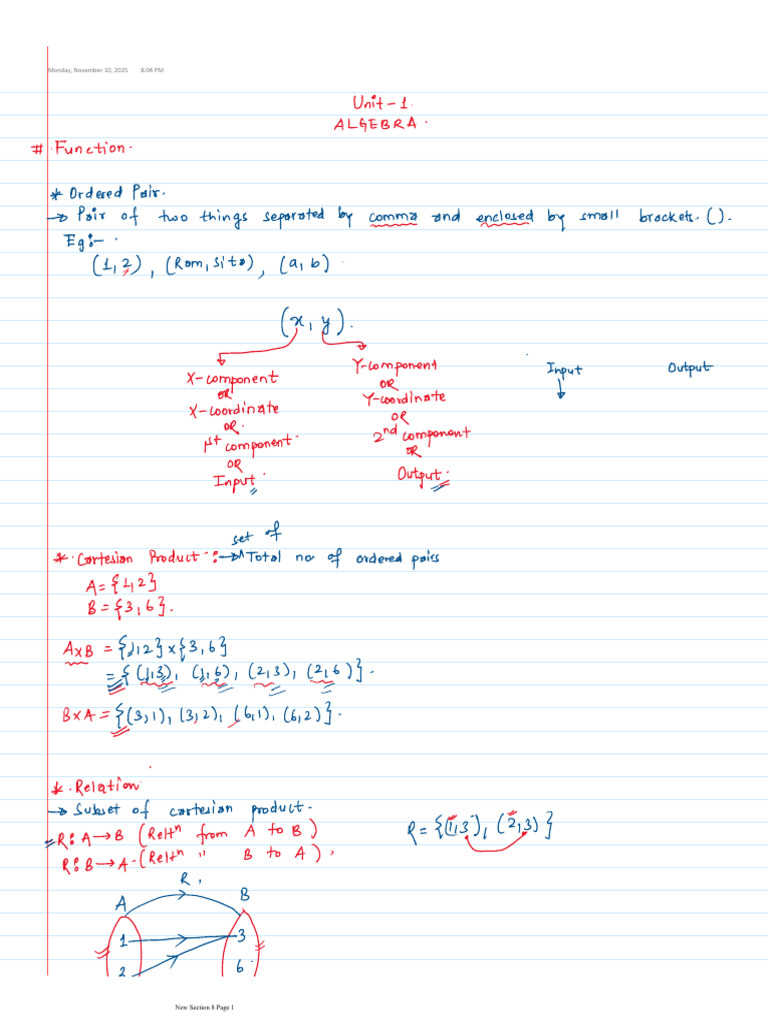 Monday, November 10, 2025 8:04 PM
Unit-1.
ALGEBRA.
# Function.
* Ordered Pair.
→ Pair of two things separated by comma and enclosed by small brackets. ().
Eg:-
(1,2), (Ram, Sita), (a, b)
(x, y).
X-component
OR
X-coordinate
OR.
1st component.
OR
Input
Y-component
OR
Y-coordinate
OR
2nd component
OR
Output.
Input Output
set of
* Cartesian Product:→ ^ Total no of ordered pairs
A = {1,2}
B = {3,6}.
A×B = {1,2} × {3,6}
= {(1,3), (1,6), (2,3), (2,6)}.
B×A = {(3,1), (3,2), (6,1), (6,2)}.
* Relation
→ Subset of cartesian product.
R: A→B (Reltn from A to B)
R: B→A (Reltn " B to A),
R = {(1,3), (2,3)}
R,
A B
1 3
2 6
New Section 8 Page 1